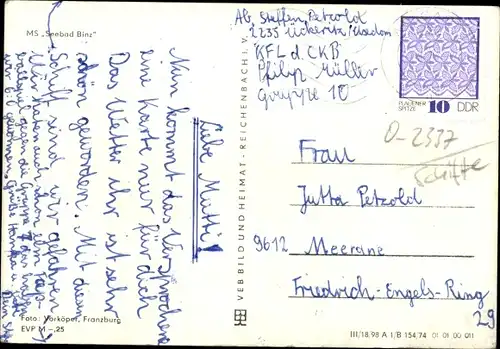 MS „Seebad Binz"
Liebe Mutti!
Nun kommt das Versprochene
eine Karte nur für dich
Das Wetter ihr ist sehr
schön geworden. Mit dem
Schiff sind wir gefahren
Wir haben auch schon ein
gegen die Gruppe 7 das
wir 6:0 gewonnen. Grüße
Dein
Foto: Vorköper, Franzburg
EVP M –.25
VEB BILD UND HEIMAT · REICHENBACH i. V.
Ab. Steffen Petzold
2235 Ückeritz/Usedom
KFL d. CKB
Philip Müller
Gruppe 10
PLAUENER
SPITZE 10 DDR
0-2337
Schiffe
Frau
Jutta Petzold
9612 Meerane
Friedrich-Engels-Ring
29
III/18/98 A 1/B 154/74 01 01 00 011